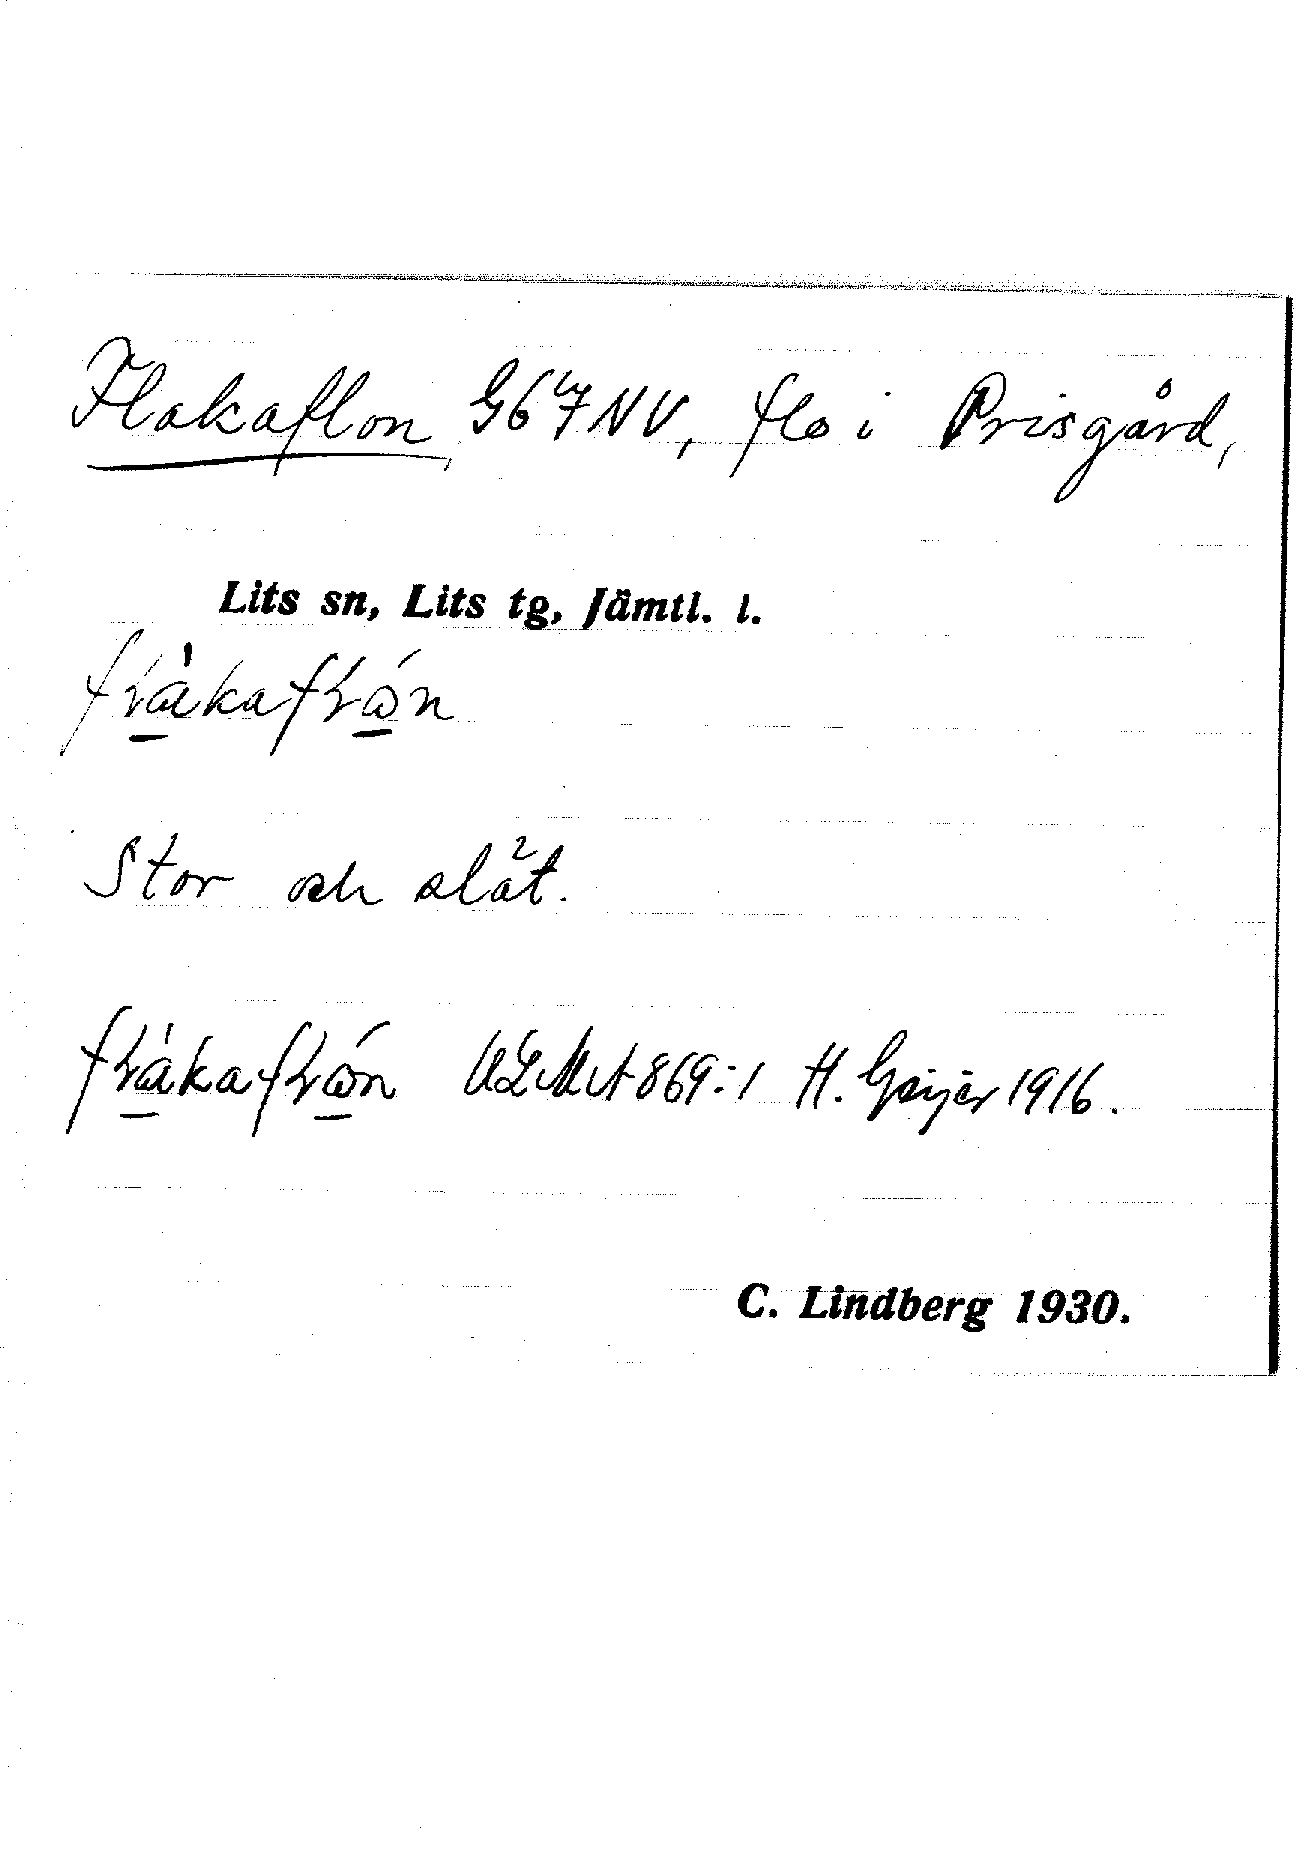 Flakaflon G67NV, flo i Prisgård,
Lits sn, Lits tg, Jämtl. l.
Stor och slät.
ULMA 869:1 H. Geijer 1916.
C. Lindberg 1930.